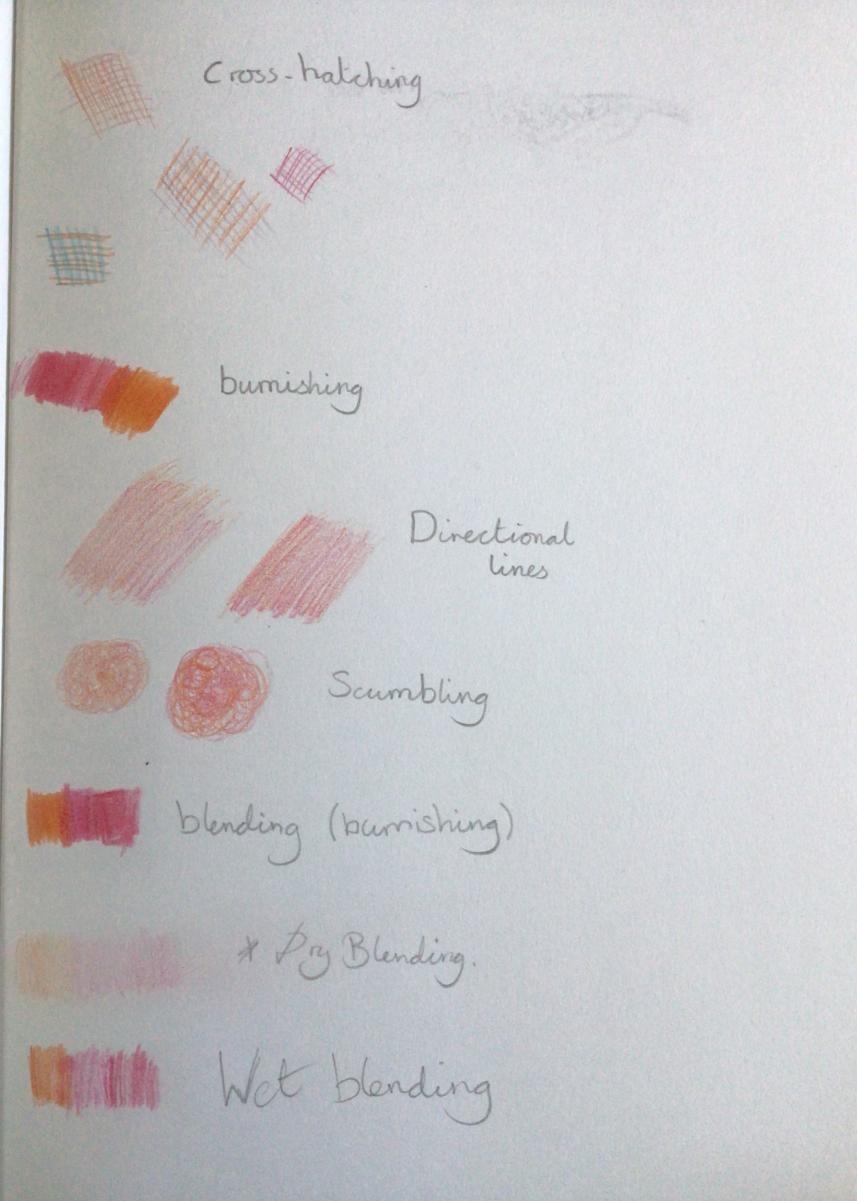 Cross-hatching
burnishing
Directional
lines
Scumbling
blending (burnishing)
* Dry Blending.
Wet blending